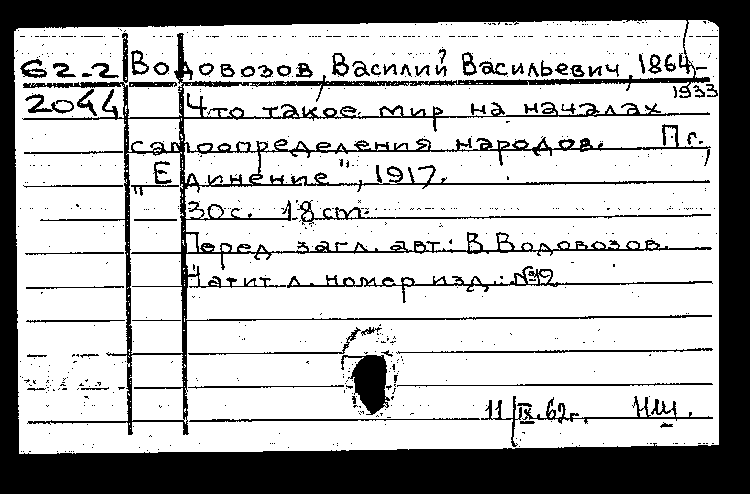 62-2 Водовозов, Василий Васильевич, 1864-
1933
2044 Что такое мир на началах
самоопределения народов. Пг.,
„Единение", 1917.
30 с. 18 cm.
Перед загл. авт.: В. Водовозов.
На тит л. номер изд.: №12
11/IX.62г. НШ.